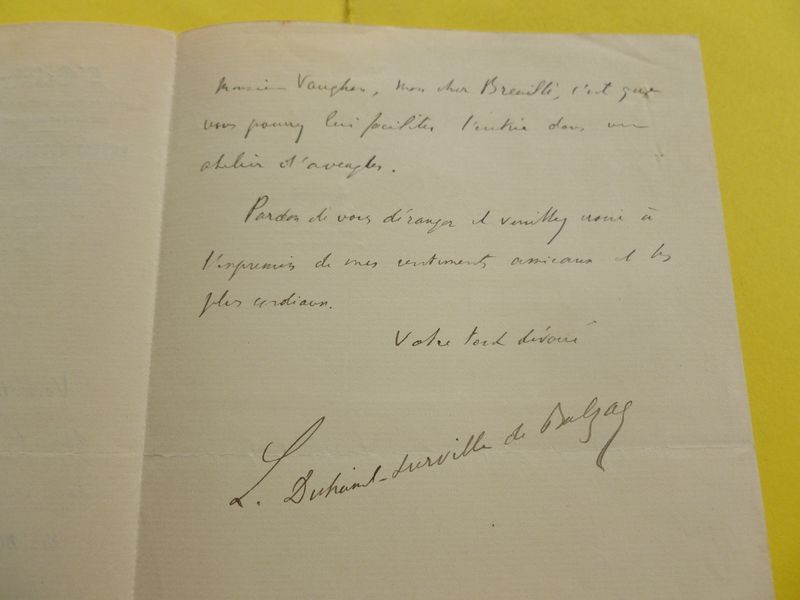 Monsieur Vaughan, mon cher Breuillé, c'est que
vous pourrez lui faciliter l'entrée dans un
atelier d'aveugles.
Pardon de vous déranger et veuillez croire à
l'expression de mes sentiments amicaux et les
plus cordiaux.
Votre tout dévoué
L. Duhamel-Surville de Balzac